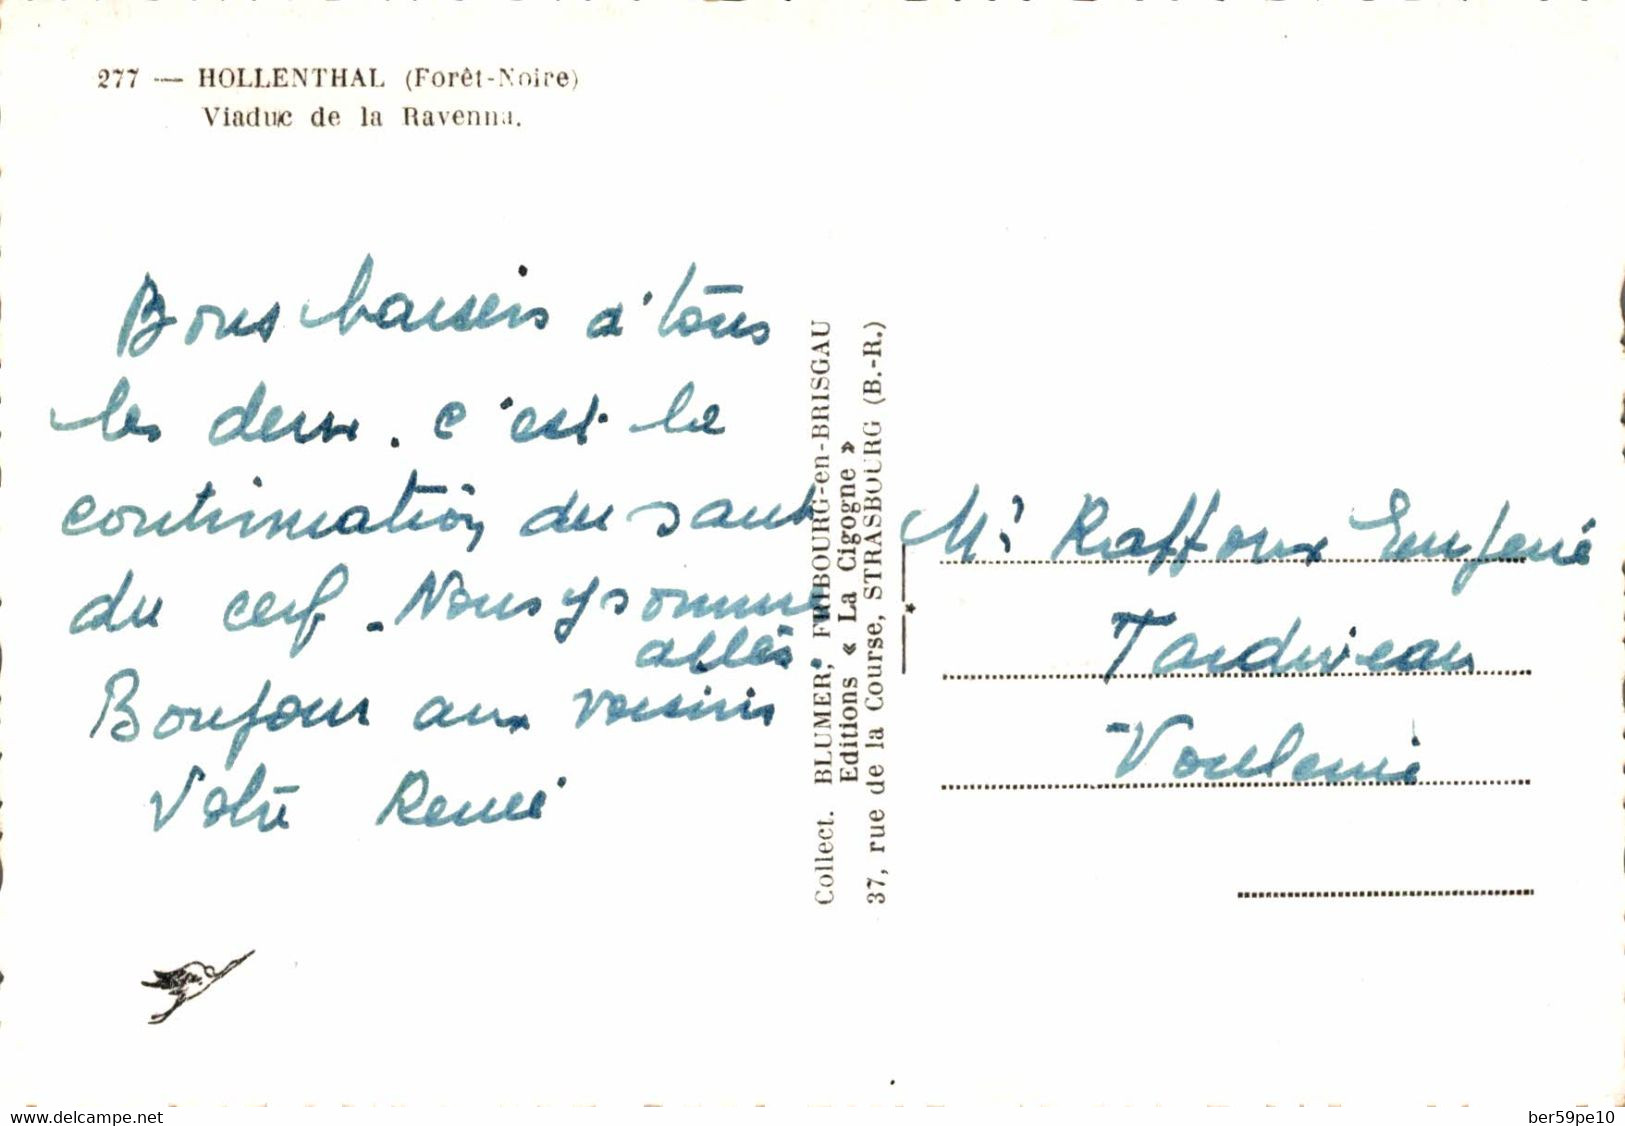 277 — HOLLENTHAL (Forêt-Noire)
Viaduc de la Ravenna.
Bons baisers à tous
les deux. c'est la
continuation du saut
du cerf. Nous y sommes
allés
Bonjour aux voisins
Votre René
Collect. BLUMER, FRIBOURG-en-BRISGAU
Editions « La Cigogne »
37, rue de la Course, STRASBOURG (B.-R.)
Mr Raffoux Eugene
Tardiveau
Voulême
www.delcampe.net
ber59pe10